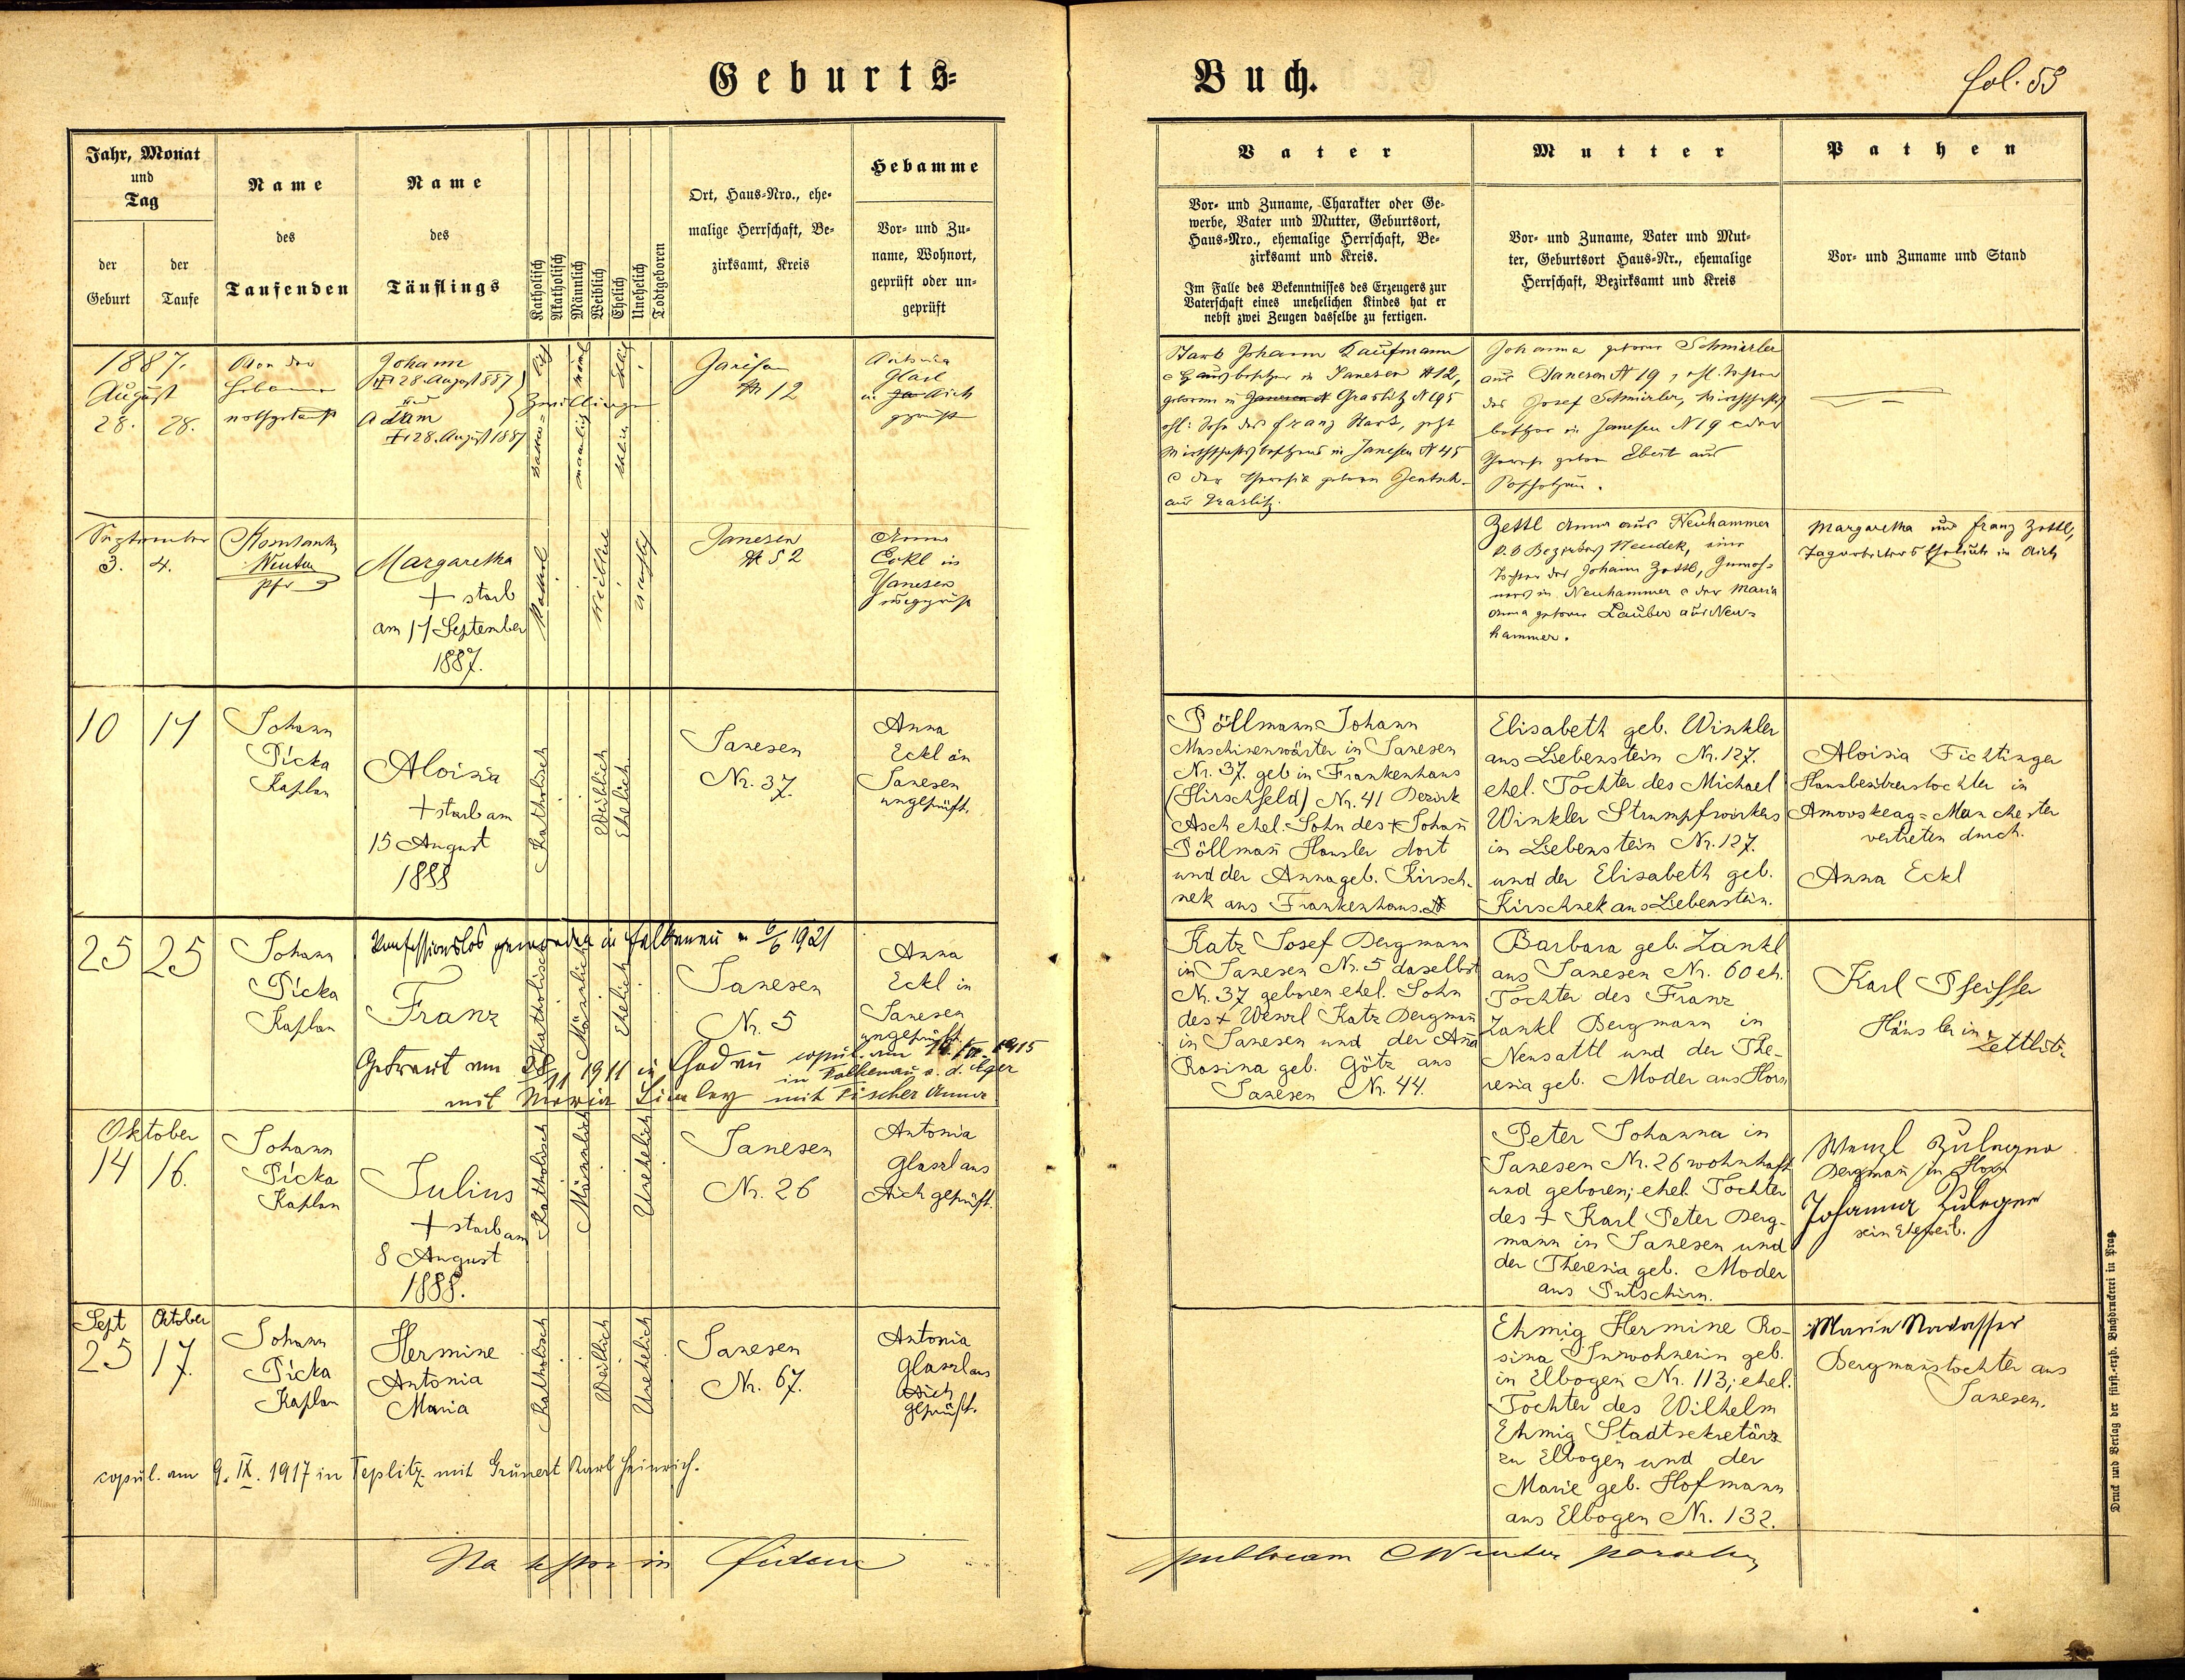 Geburts=
Buch.
fol. 53
Jahr, Monat
und
Tag
der
Geburt
der
Taufe
Name
des
Taufenden
Name
des
Täuflings
Katholisch
Akatholisch
Männlich
Weiblich
Ehelich
Unehelich
Todtgeboren
Ort, Haus-Nro., ehe-
malige Herrschaft, Be-
zirksamt, Kreis
Hebamme
Vor- und Zu-
name, Wohnort,
geprüft oder un-
geprüft
Vater
Vor- und Zuname, Charakter oder Ge-
werbe, Vater und Mutter, Geburtsort,
Haus-Nro., ehemalige Herrschaft, Be-
zirksamt und Kreis.
Im Falle des Bekenntnisses des Erzeugers zur
Vaterschaft eines unehelichen Kindes hat er
nebst zwei Zeugen dasselbe zu fertigen.
Mutter
Vor- und Zuname, Vater und Mut-
ter, Geburtsort Haus-Nr., ehemalige
Herrschaft, Bezirksamt und Kreis
Pathen
Vor- und Zuname und Stand
1887.
August
28. 28.
Von der
Hebamme
nothgetauft
Johann
† 28. August 887
und
Adam
† 28. August 1887
Zwillinge
Janesen
N. 12
Antonia
Glasl
in Aich
geprüft
Stark Johann Kaufmann
Hausbesitzer in Janesen N 12,
geboren in Graslitz N 195
ehl. Sohn des Franz Stark, jetzt
Wirthschaftsbesitzers in Janesen N 45
der Theresia geboren Gentsch
aus Graslitz.
Johanna geborne Schmierler
aus Janesen N 19, ehl. Tochter
des Josef Schmierler, Wirthschafts
besitzer in Janesen N 19 der
Theresia gebor Ebert aus
September
3. 4.
Konstantin
Winter
Pfr
Margaretha
† starb
am 17 September
1887.
Janesen
N 52
Anna
Eckl in
Janesen
ungeprüft
Zettl Anna aus Neuhammer
Bezirkes Neudek, eine
Tochter des Johann Zettl,
in Neuhammer der Maria
Anna geborne Lauber aus Neu-
hammer.
Margaretha und Franz Zettl,
Tagarbeiters Eheleute in Aich
10 17
Johann
Pícka
Kaplan
Aloisia
† starb am
15 August
1888
Katholisch
Weiblich
Ehelich
Janesen
Nr. 37.
Anna
Eckl in
Janesen
ungeprüft.
Pöllmann Johann
Maschinenwärter in Janesen
Nr. 37. geb in Frankenhaus
(Hirschfeld) Nr. 41 Bezirk
Asch ehel. Sohn des † Johan̄
Pöllman̄ Häusler dort
und der Anna geb. Kirsch-
nek aus Frankenhaus.
Elisabeth geb. Winkler
aus Liebenstein Nr. 127.
ehel. Tochter des Michael
Winkler Strumpfwirkers
in Liebenstein Nr. 127.
und der Elisabeth geb.
Kirschnek aus Liebenstein.
Aloisia Fichtinger
Hausbesitzerstochter in
Amovskeag=Manchester
vertreten durch
Anna Eckl
25 25
Johann
Pícka
Kaplan
Konfessionslos geworden in Falkenau 6/6 1921
Franz
Katholisch
Männlich
Ehelich
Janesen
Nr. 5
Anna
Eckl in
Janesen
ungeprüft.
Getraut am 28/11 1911 in Chodau
mit Maria
copul. am 1915
in Falkenau a. d. Eger
mit Fischer Anna
Katz Josef Bergmann
in Janesen Nr. 5 daselbst
Nr. 37 geboren ehel. Sohn
des † Wenzl Katz Bergman̄
in Janesen und der An̄a
Rosina geb. Götz aus
Janesen Nr. 44.
Barbara geb. Zankl
aus Janesen Nr. 60 eh.
Tochter des Franz
Zankl Bergmann in
Neusattl und der The-
resia geb. Moder aus Horn
Karl Pfeiffer
Häusler in
Zettlitz
Oktober
14 16.
Johann
Pícka
Kaplan
Julius
† starb am
8 August
1888.
Katholisch
Männlich
Unehelich
Janesen
Nr. 26
Antonia
Glassl aus
Aich geprüft.
Peter Johanna in
Janesen Nr. 26 wohnhaft
und geboren; ehel. Tochter
des † Karl Peter Berg-
mann in Janesen und
der Theresia geb. Moder
aus Putschirn.
Wenzl Zuleger
Bergman̄ in Horn
Johanna Zuleger
sein Eheweib.
Sept Oktober
25 17.
Johann
Pícka
Kaplan
Hermine
Antonia
Maria
Katholisch
Weiblich
Unehelich
Janesen
Nr. 67.
Antonia
Glassl aus
Aich
geprüft.
copul. am 9. IX. 1917 in Teplitz mit Grünert Karl Heinrich.
Ehmig Hermine Ro-
sina Inwohnerin geb.
in Elbogen Nr. 113; ehel.
Tochter des Wilhelm
Ehmig Stadtsekretärs
zu Elbogen und der
Marie geb. Hofmann
aus Elbogen Nr. 132.
Marie
Bergmanstochter aus
Janesen.
in fidem
publicam Winter
Druck und Verlag der fürst.-erzb. Buchdruckerei in Prag